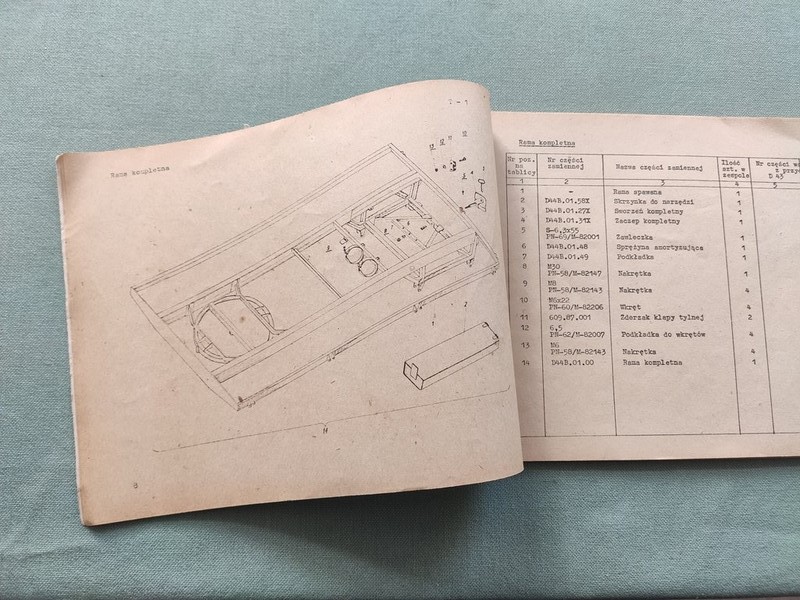 Rama kompletna
2 - 1
14
8
Rama kompletna
Nr poz. na tablicy Nr części zamiennej Nazwa części zamiennej Ilość szt. w zespole Nr części w z przy D 43
1 2 3 4 5
1 - Rama spawana 1
2 D44B.01.58X Skrzynka do narzędzi 1
3 D44B.01.27X Sworzeń kompletny 1
4 D44B.01.31X Zaczep kompletny 1
5 S-6,3x55
PN-69/M-82001 Zawleczka 1
6 D44B.01.48 Sprężyna amortyzująca 1
7 D44B.01.49 Podkładka 1
8 M30
PN-58/M-82147 Nakrętka 1
9 M8
PN-58/M-82143 Nakrętka 4
10 M6x22
PN-60/M-82206 Wkręt 4
11 609.87.001 Zderzak klapy tylnej 2
12 6,5
PN-62/M-82007 Podkładka do wkrętów 4
13 M6
PN-58/M-82143 Nakrętka 4
14 D44B.01.00 Rama kompletna 1